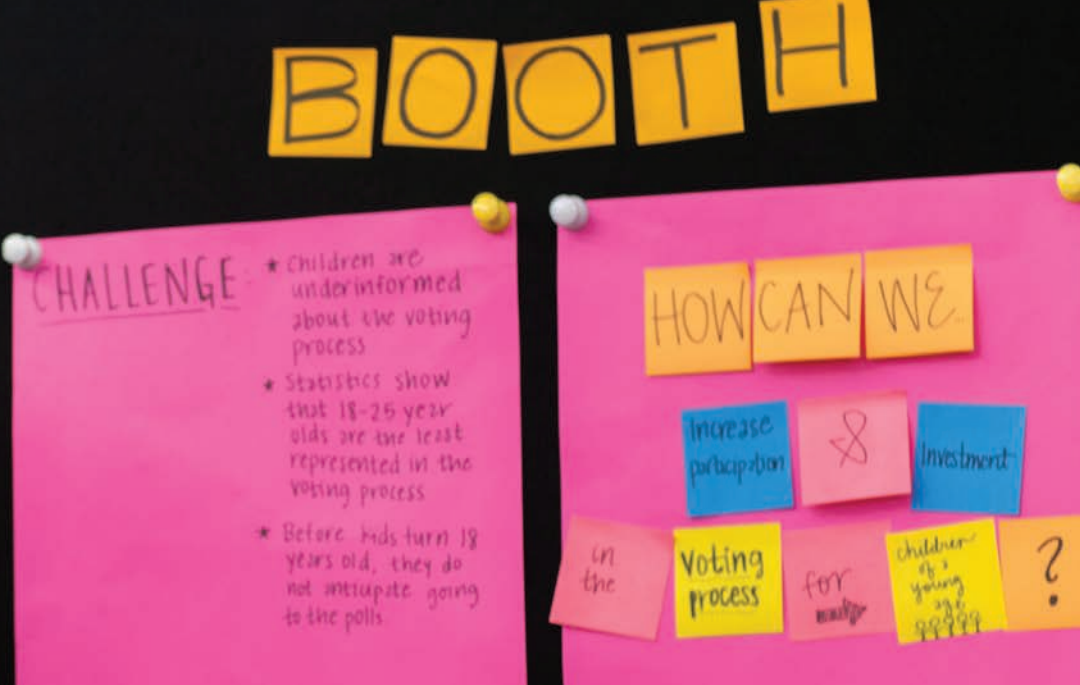 BOOTH
CHALLENGE
* Children are
underinformed
about the voting
process
* Statistics show
that 18-25 year
olds are the least
represented in the
voting process
* Before kids turn 18
years old, they do
not anticipate going
to the polls
HOW CAN WE..
Increase
participation
&
Investment
in
the
Voting
process
for
children
of a
young
age
?